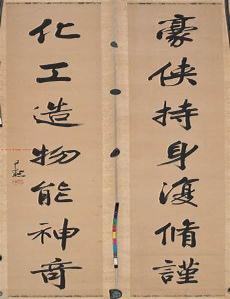 豪俠持身復脩謹
化工造物能神奇